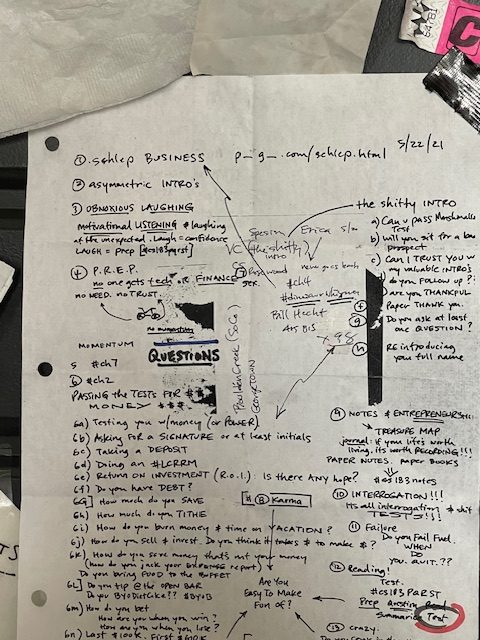 5/22/21
① schlep BUSINESS p_g_.com/schlep.html
② asymmetric INTRO's
③ OBNOXIOUS LAUGHING
motivational LISTENING & laughing
at the unexpected. Laugh = confidence
LAUGH = PREP
④ P.R.E.P.
no one gets tech or FINANCE
no NEED. no TRUST.
MOMENTUM
QUESTIONS
#ch7
#ch2
PASSING THE TESTS FOR
MONEY $$$
6a) Testing you w/money (or POWER)
6b) Asking FOR A SIGNATURE or at least initials
6c) Taking a DEPOSIT
6d) Doing an #LCRRM
6e) Return on INVESTMENT (R.O.I.) Is there ANY hope?
6f) Do you have DEBT?
6g] How much do you SAVE
6h) How much do you TITHE
6i) How do you burn money & time on VACATION?
6j) How do you sell & invest. Do you think it takes $ to make $?
6k) How do you save money that's not your money
(how do you jack your EXPENSE report)
Do you bring FOOD to the BUFFET
6L] Do you tip @ the OPEN BAR
Do you BYODietCoke?? #BYOB
6m) How do you bet
How are you when you win?
How are you when you lose?
6n) Last $100k. First
the shitty INTRO
Erica
(the shitty
intro
never goes back
#ch4
Bill Hecht
Boulder Creek (SoCo)
GEORGETOWN
#⑧ Karma
Are You
Easy To Make
Fun of?
a) Can u pass Marshmallow
Test
b) will you sit for a low
prospect
c) Can I TRUST you w
my valuable INTRO's
d) do you FOLLOW up?
e) are you THANKFUL
f Paper THANK you.
g Do you ask at least
one QUESTION?
h RE introducing
your full name
⑨ NOTES & ENTREPRENEURS
TREASURE MAP
journal: if your life's worth
living, its worth RECORDING!!!
PAPER NOTES. PAPER BOOKS
#cs183 notes
⑩ INTERROGATION!!!
Its all interrogation & shit
TESTS!!!
⑪ Failure
Do you Fail Fuel.
WHEN
DO
you. QUIT.??
⑫ Reading!
Test.
Prep Question Read
Summarize Test
⑬ crazy.